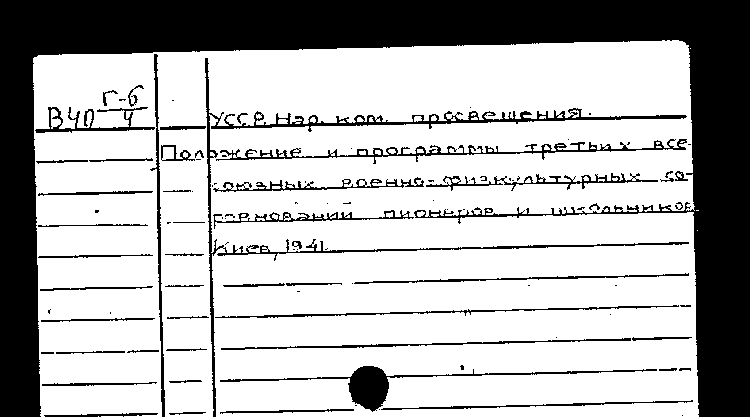 В40 Г-6/4
УССР. Нар. ком. просвещения.
Положение и программы третьих все-
союзных военно-физкультурных со-
ревнований пионеров и школьников
Киев, 1941.